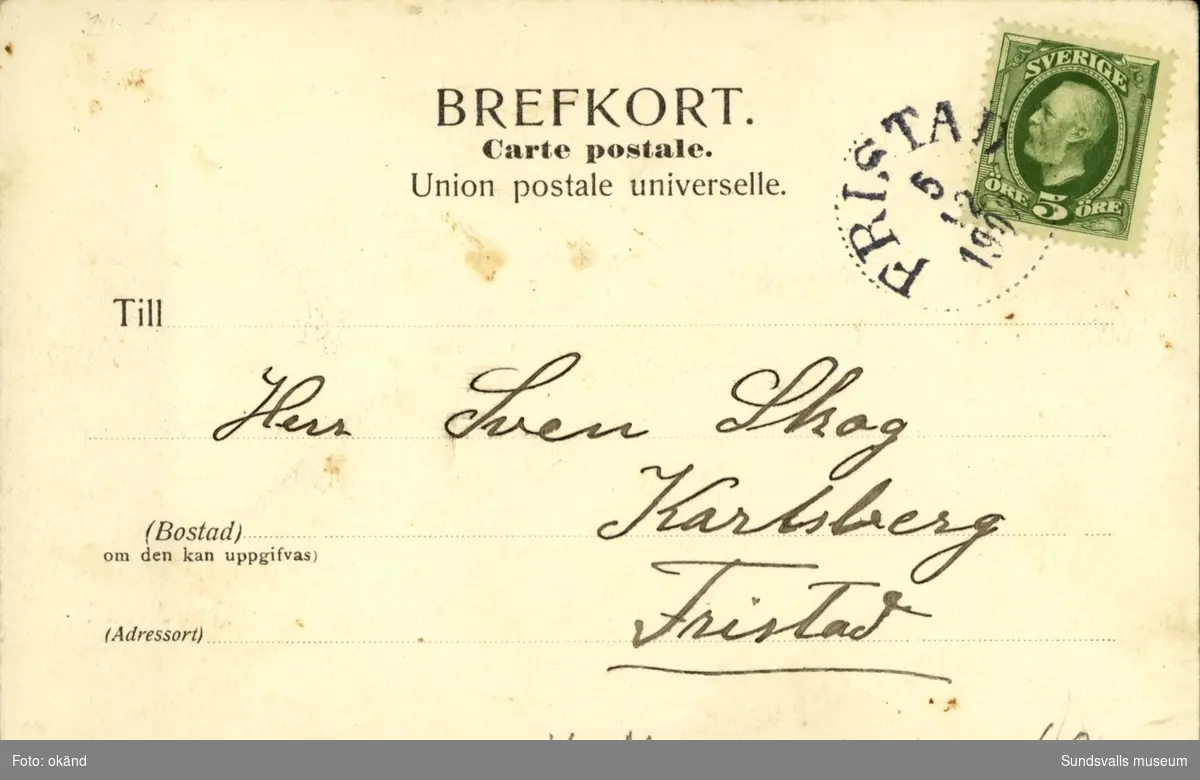 BREFKORT.
Carte postale.
Union postale universelle.
SVERIGE
ÖRE 5 ÖRE
FRISTAD
5
12
Till
Herr Sven Skog
Karlsberg
(Bostad)
om den kan uppgifvas)
Fristad
(Adressort)
Foto: okänd
Sundsvalls museum